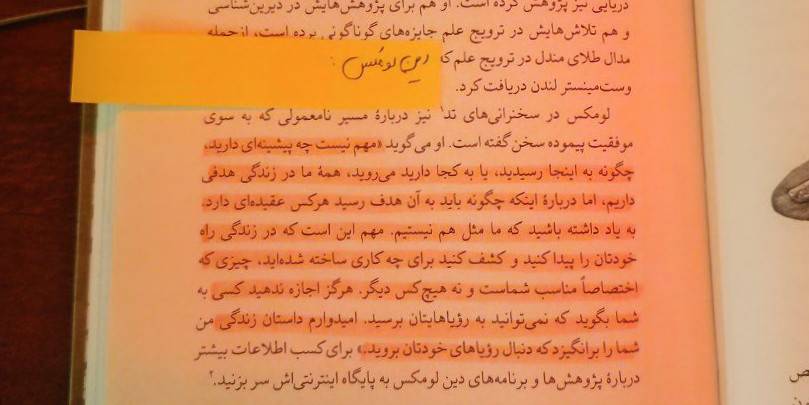 دریایی نیز پژوهش کرده است. او هم برای پژوهش‌هایش در دیرین‌شناسی
و هم تلاش‌هایش در ترویج علم جایزه‌های گوناگونی برده است، ازجمله
مدال طلای مندل در ترویج علم که
دین لومکس :
وست‌مینستر لندن دریافت کرد.
لومکس در سخنرانی‌های تد۱ نیز دربارهٔ مسیر نامعمولی که به سوی
موفقیت پیموده سخن گفته است. او می‌گوید «مهم نیست چه پیشینه‌ای دارید،
چگونه به اینجا رسیدید، یا به کجا دارید می‌روید، همهٔ ما در زندگی هدفی
داریم، اما دربارهٔ اینکه چگونه باید به آن هدف رسید هرکس عقیده‌ای دارد.
به یاد داشته باشید که ما مثل هم نیستیم. مهم این است که در زندگی راه
خودتان را پیدا کنید و کشف کنید برای چه کاری ساخته شده‌اید، چیزی که
اختصاصاً مناسب شماست و نه هیچ‌کس دیگر. هرگز اجازه ندهید کسی به
شما بگوید که نمی‌توانید به رؤیاهایتان برسید. امیدوارم داستان زندگی من
شما را برانگیزد که دنبال رؤیاهای خودتان بروید.» برای کسب اطلاعات بیشتر
دربارهٔ پژوهش‌ها و برنامه‌های دین لومکس به پایگاه اینترنتی‌اش سر بزنید.۲